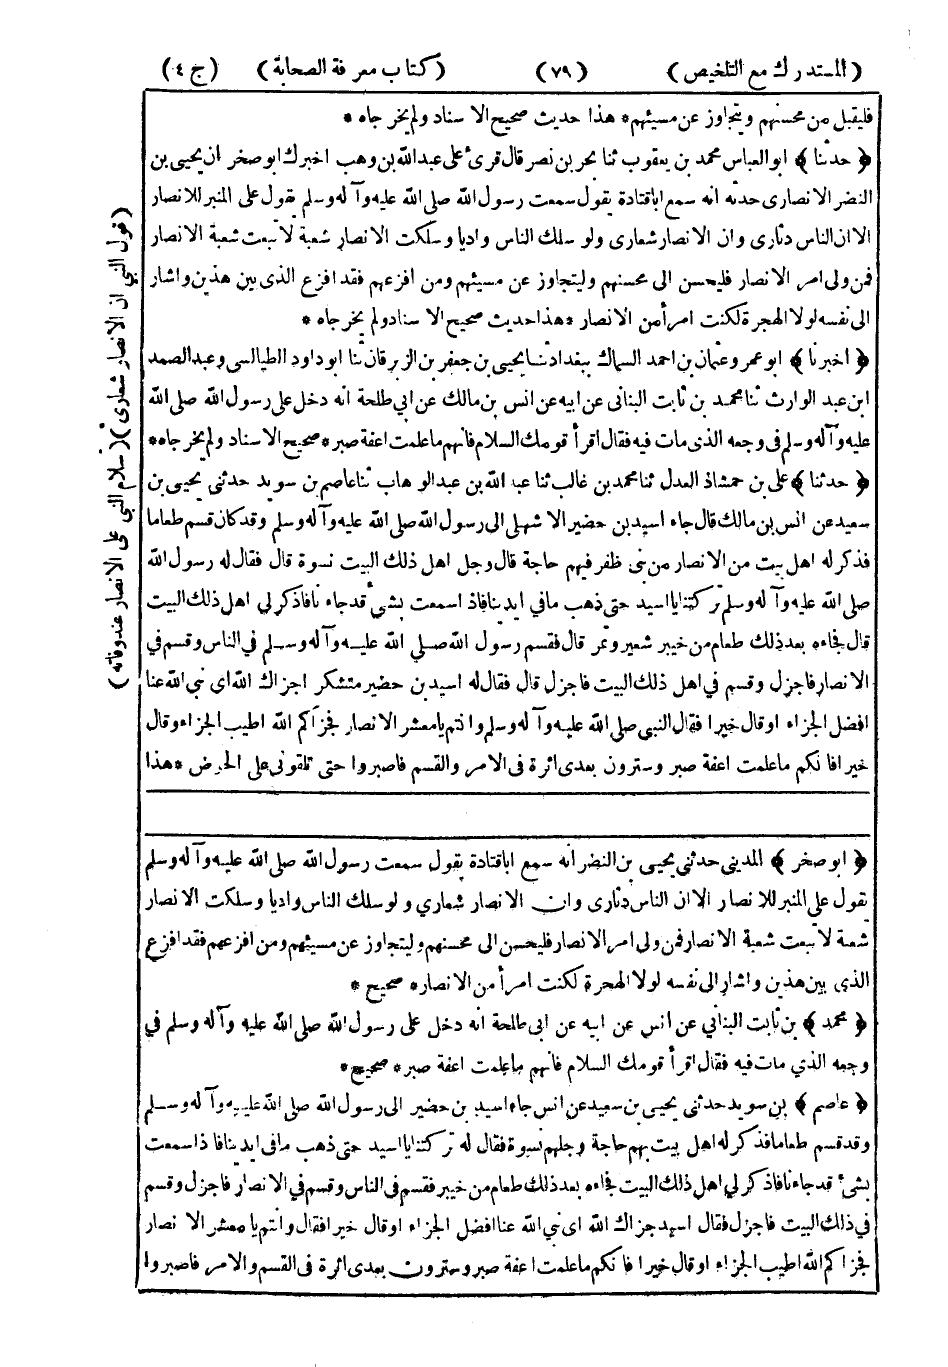 (المستدرك مع التلخيص) (٧٩) (كتاب معرفة الصحابة) (ج ٤)
فليقبل من محسنهم ويتجاوز عن مسيئهم* هذا حديث صحيح الاسناد ولم يخرجاه *
﴿ حدثنا ﴾ ابو العباس محمد بن يعقوب ثنا بحر بن نصر قال قرئ على عبد الله بن وهب اخبرك ابو صخر ان يحيى بن
النضر الانصارى حدثه انه سمع اباقتادة يقول سمعت رسول الله صلى الله عليه وآله وسلم يقول على المنبر للانصار
الا ان الناس دثارى وان الانصار شعارى ولو سلك الناس واديا وسلكت الانصار شعبة لاتبعت شعبة الانصار
فمن ولى امر الانصار فليحسن الى محسنهم وليتجاوز عن مسيئهم ومن افزعهم فقد افزع الذى بين هذين واشار
الى نفسه لولا الهجرة لكنت امرأ من الانصار *هذا حديث صحيح الاسناد ولم يخرجاه *
﴿ اخبرنا ﴾ ابو عمرو عثمان بن احمد السماك ببغداد ثنا يحيى بن جعفر بن الزبرقان ثنا ابو داود الطيالسى وعبد الصمد
ابن عبد الوارث ثنا محمد بن ثابت البنانى عن ابيه عن انس بن مالك عن ابي طلحة انه دخل على رسول الله صلى الله
عليه وآله وسلم فى وجعه الذى مات فيه فقال اقرأ قومك السلام فانهم ماعلمت اعفة صبر* صحيح الاسناد ولم يخرجاه*
﴿ حدثنا ﴾ على بن حمشاذ العدل ثنا محمد بن غالب ثنا عبد الله بن عبد الوهاب ثنا عاصم بن سويد حدثنى يحيى بن
سعيد عن انس بن مالك قال جاء اسيد بن حضير الاشهلى الى رسول الله صلى الله عليه وآله وسلم وقد كان قسم طعاما
فذكر له اهل بيت من الانصار من بنى ظفر فيهم حاجة قال وجل اهل ذلك البيت نسوة قال فقال له رسول الله
صلى الله عليه وآله وسلم تركتنا يا اسيد حتى ذهب مافي ايدينا فاذا سمعت بشئ قد جاءنا فاذكر لي اهل ذلك البيت
قال فجاءه بعد ذلك طعام من خيبر شعير وتمر قال فقسم رسول الله صلى الله عليه وآله وسلم فى الناس وقسم في
الانصار فاجزل وقسم في اهل ذلك البيت فاجزل قال فقال له اسيد بن حضير متشكر اجزاك الله اى نبي الله عنا
افضل الجزاء اوقال خيرا فقال النبي صلى الله عليه وآله وسلم وانتم يا معشر الانصار فجزاكم الله اطيب الجزاء وقال
خيرا فانكم ماعلمت اعفة صبر وسترون بعدى اثرة فى الامر والقسم فاصبروا حتى تلقونى على الحوض *هذا
(قول النبي ان الانصار شعارى) (سلام النبي على الانصار عند وفاته)
﴿ ابو صخر ﴾ المدينى حدثنى يحيى بن النضر انه سمع اباقتادة يقول سمعت رسول الله صلى الله عليه وآله وسلم
يقول على المنبر للانصار الا ان الناس دثارى وان الانصار شعاري ولو سلك الناس واديا وسلكت الانصار
شعبة لاتبعت شعبة الانصار فمن ولى امر الانصار فليحسن الى محسنهم وليتجاوز عن مسيئهم ومن افزعهم فقد افزع
الذى بين هذين واشار الى نفسه لولا الهجرة لكنت امرأ من الانصار* صحيح *
﴿ محمد ﴾ بن ثابت البنانى عن انس عن ابيه عن ابى طلحة انه دخل على رسول الله صلى الله عليه وآله وسلم في
وجعه الذي مات فيه فقال اقرأ قومك السلام فانهم ماعلمت اعفة صبر* صحيح*
﴿ عاصم ﴾ بن سويد حدثنى يحيى بن سعيد عن انس جاء اسيد بن حضير الى رسول الله صلى الله عليه وآله وسلم
وقد قسم طعاما فذكر له اهل بيت بهم حاجة وجلهم نسوة فقال له تركتنا يا اسيد حتى ذهب مافى ايدينا فاذا سمعت
بشئ قد جاءنا فاذكر لي اهل ذلك البيت فجاءه بعد ذلك طعام من خيبر فقسم فى الناس وقسم في الانصار فاجزل وقسم
في ذلك البيت فاجزل فقال اسيد جزاك الله اى نبي الله عنا افضل الجزاء اوقال خيرا فقال وانتم يا معشر الانصار
فجزاكم الله اطيب الجزاء اوقال خيرا فانكم ماعلمت اعفة صبر وسترون بعدى اثرة فى القسم والامر فاصبروا